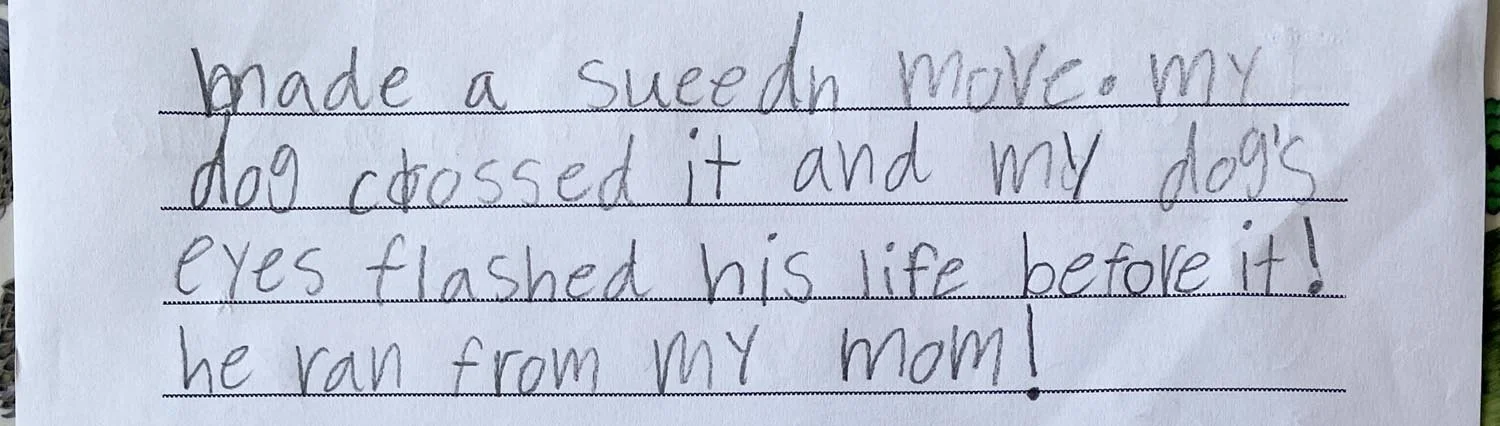 made a sueedn move. my
dog crossed it and my dog's
eyes flashed his life before it!
he ran from my mom!